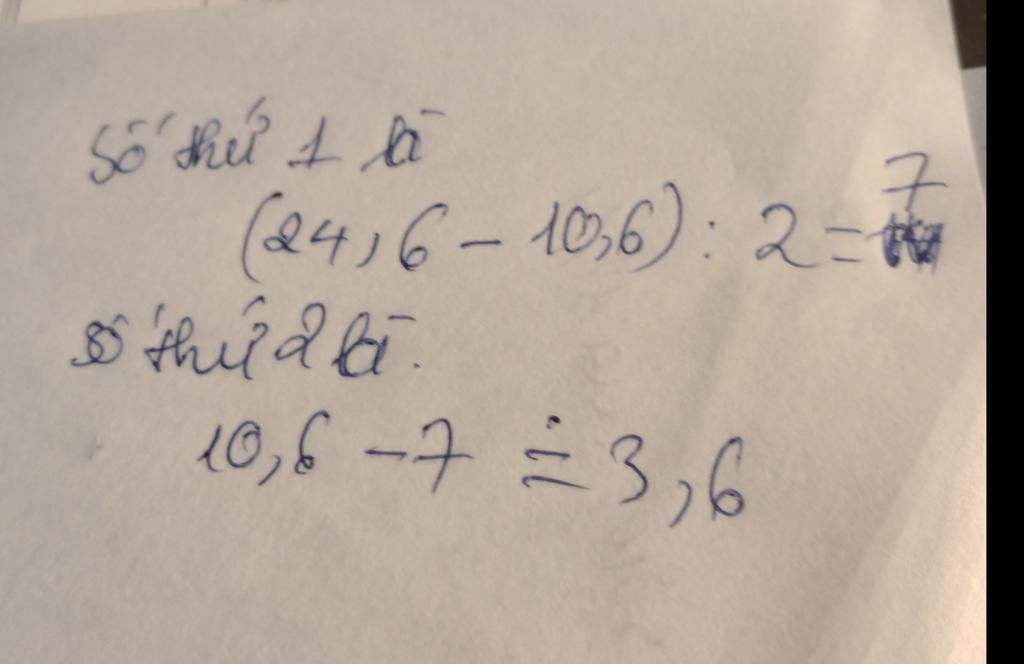 Số thứ 1 là
(24,6 - 10,6) : 2 = 7
Số thứ 2 là.
10,6 - 7 = 3,6